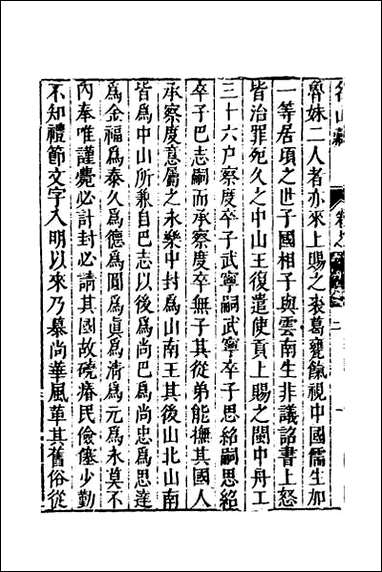 名山藏 卷之
魯妹二人者亦來上賜之裘葛甕飱視中國儒生加
一等居頃之世子國相子與雲南生非議詔書上怒
皆治罪死久之中山王復遣使貢上賜之閩中舟工
三十六户察度卒子武寧嗣武寧卒子思紹嗣思紹
卒子巴志嗣而承察度卒無子其從弟能撫其國人
承察度意屬之永樂中封爲山南王其後山北山南
皆爲中山所兼自巴志以後爲尚巴爲尚忠爲思達
爲金福爲泰久爲德爲圓爲眞爲清爲元爲永莫不
內奉唯謹薨必計封必請其國故磽瘠民儉僿少勤
不知禮節文字入明以來乃慕尚華風革其舊俗從